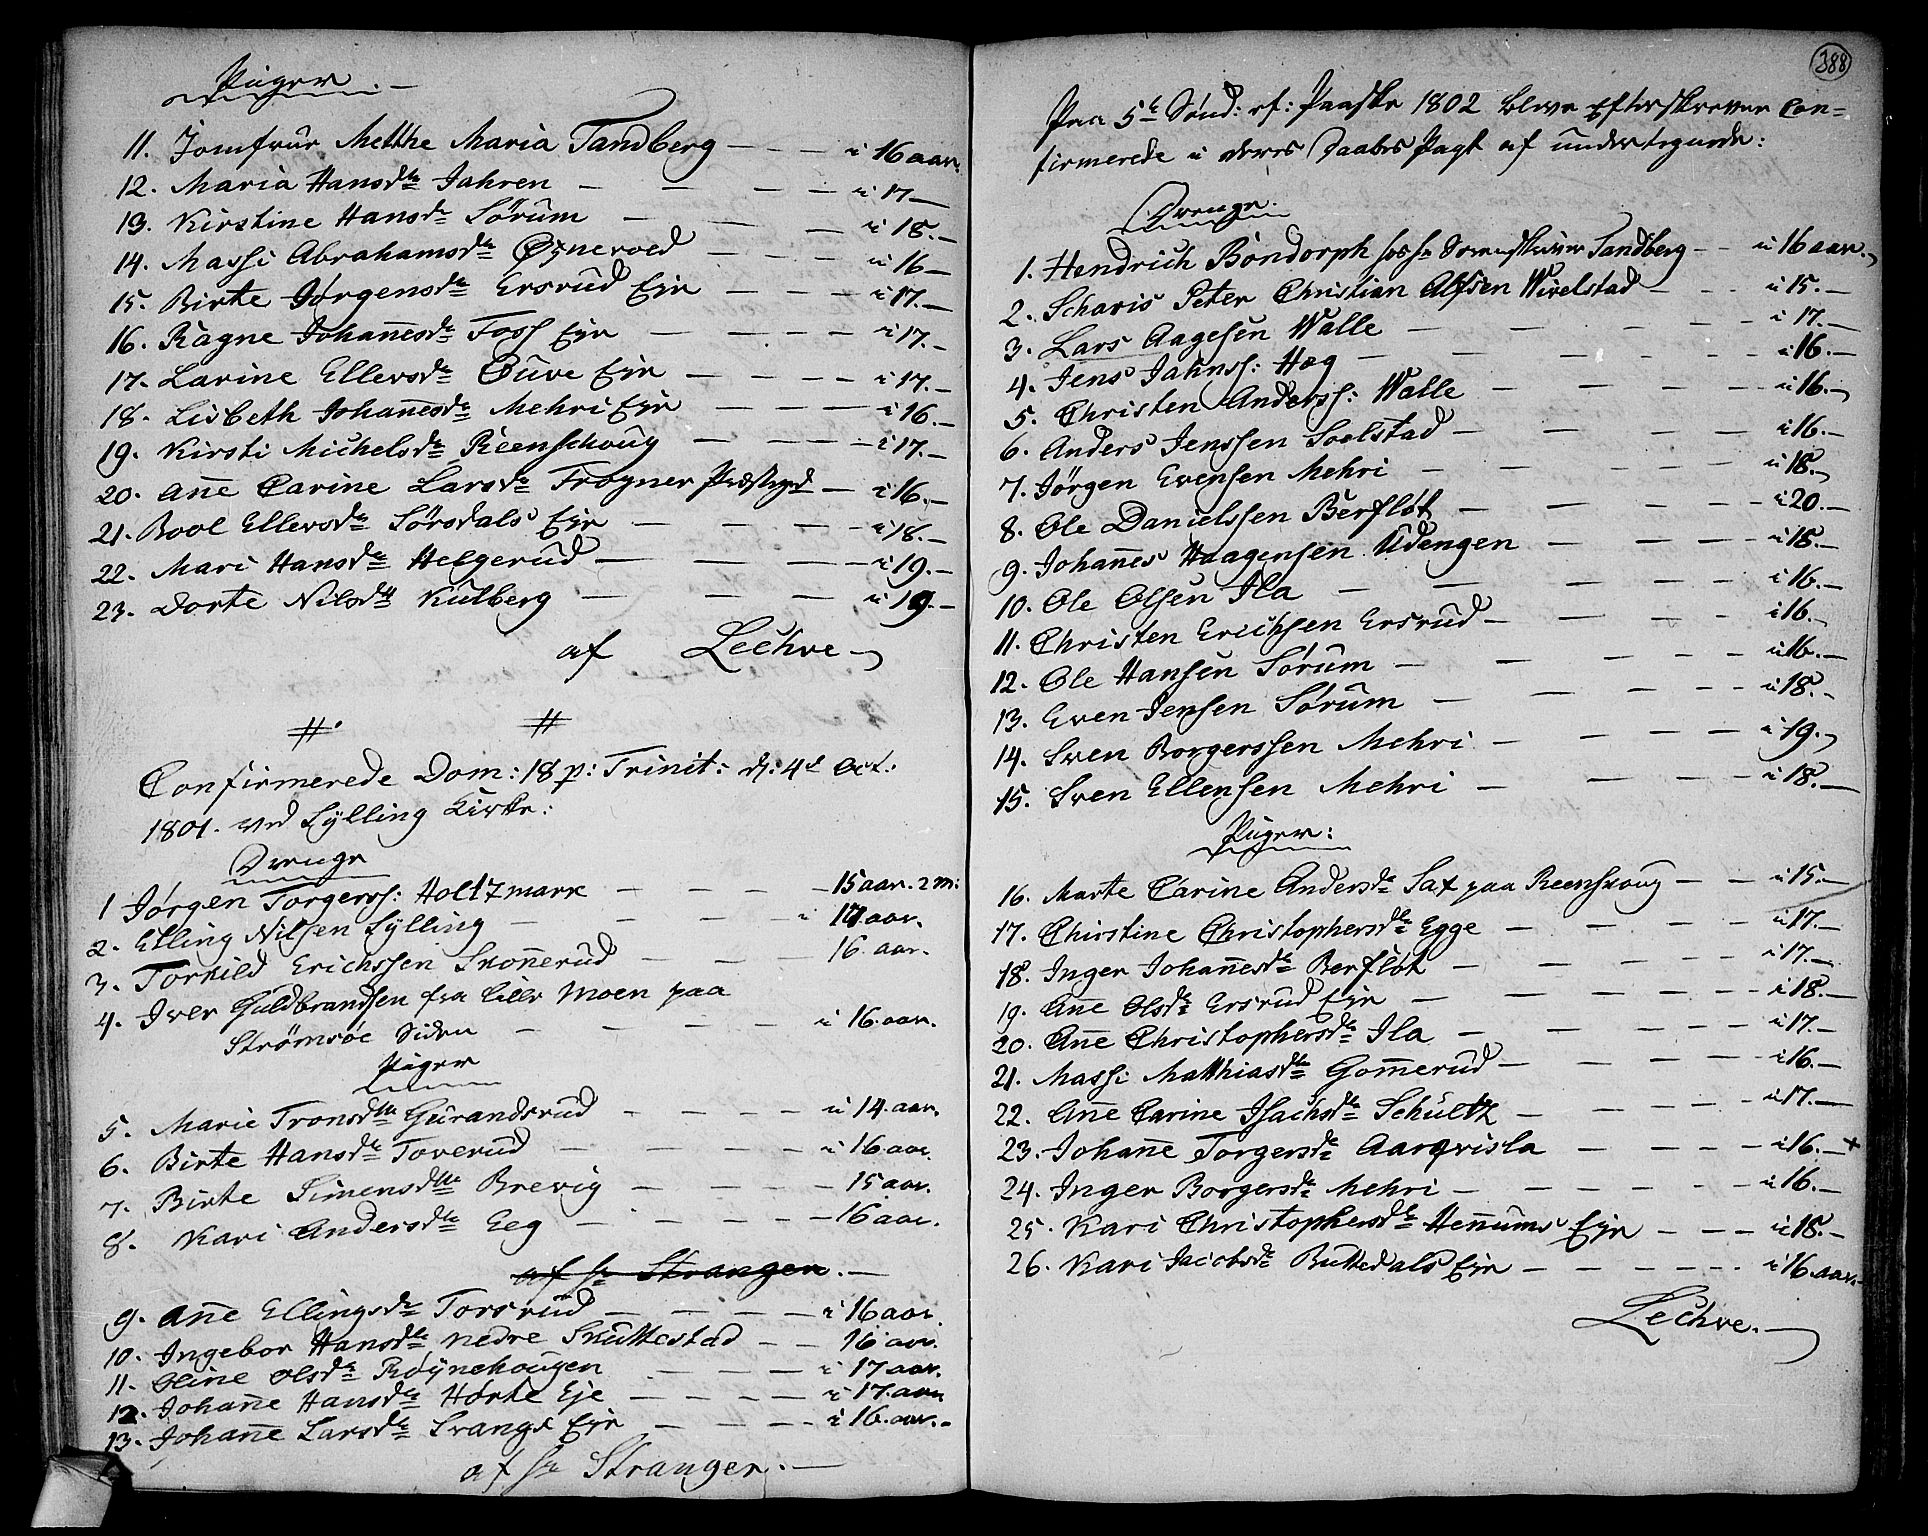 Piger.
11. Jomfrue Methe Maria Tandberg — — — i 16 aar.
12. Maria Hansdtr Jahren — — — — i 17 —
13. Kirstine Hansdr Sörum — — — i 18. —
14. Massi Abrahamsdtr — — — i 16 —
15. Birte Jörgensdr Ersrud Eje — — — i 17. —
16. Ragne Johan̄esdr Foss Eje — — — i 17. —
17. Larine Ellevsdr Øuve Eje — — — — i 17. —
18. Lisbeth Johan̄esdr Mehri Eje — — — i 16. —
19. Kirsti Michelsdr Reenschoug — — — i 17. —
20. An̄e Carine Larsdr Frogner Præstegrd — i 16. —
21. Bool Ellevsdr Sörsdals Eje — — — i 18. —
22. Mari Hansdr Helgerud — — — — i 19. —
23. Dorte Nilsdtr Kulberg — — — — i 19. —
af Lechve
# #
Confirmerede Dom: 18 p: Trinit: d: 4d Oct:
1801. ved Sylling Kirke:
Drenge
1 Jörgen Torgerss: Holtzmark — — — 15 aar. 2 m:
2. Elling Nilsen Sylling — — — — i 17 aar.
3. Torkild Erichssen Skon̄erud — — — 16. aar.
4. Iver Guldbrandsen fra Lille Moen paa
Strömsöe Siden — — — — i 16. aar.
Piger
5. Marie Tronsdtr Gurandsrud — — — — i 14. aar.
6. Birte Hansdr Toverud — — — — i 16 aar.
7. Birte Simensdtr Brevig — — — — 15 aar.
8. Kari Andersdtr Eeg — — — — 16 aar.
af Hr Stranger. —
9. An̄e Ellingsdr Torsrud — — — — i 16 aar.
10. Ingebor Hansdtr nedre Skuttestad — — 16 aar.
11. Oline Olsdr Röynehougen — — — i 17 aar.
12. Johan̄e Hansdtr Hörte Eje — — — — i 17. aar
13. Johan̄e Larsdtr Svangs Eje — — — i 16. aar. —
af Hr Stranger. —
388
Paa 5te Sönd: ef: Paaske 1802 bleve Efterskrevne Con-
firmerede i deres Daabes Pagt af undertegnede:
Drenge.
1. Hendrich Böndorph hos Hr Sorenskriver Tandberg — — i 16 aar.
2. Scharis Peter Christian Alsen Wivelstad — — i 15. —
3. Lars Aagesen Walle — — — — i 17. —
4. Jens Jahnss: Hæg — — — — i 16. —
5. Christen Anderss: Walle — — — — i 16. —
6. Anders Jenssen Soelstad — — — — i 16. —
7. Jörgen Evensen Mehri — — — — i 18. —
8. Ole Danielssen Berflöt — — — — i 20. —
9. Johan̄es Haagensen Udengen — — — i 18. —
10. Ole Olsen Ila — — — — i 16. —
11. Christen Erichsen Ersrud — — — — i 16. —
12. Ole Hansen Sörum — — — — i 16. —
13. Even Jensen Sörum — — — — i 18. —
14. Sven Borgerssen Mehri — — — — i 19. —
15. Sven Ellensen Mehri — — — — i 18. —
Piger:
16. Marte Carine Andersdr Sax paa Reenskoug — — i 15. —
17. Chirstine Christophersdtr Egge — — — — i 17. —
18. Inger Johan̄esdr Berflöt — — — — i 17. —
19. An̄e Olsdr Ersrud Eje — — — — i 18. —
20. An̄e Christophersdtr Ila — — — — i 17. —
21. Massi Matthiasdtr Gom̄erud — — — — i 16. —
22. An̄e Carine Isachsdtr Schultz — — — — i 17. —
23. Johan̄e Torgersdr Aarqvisla — — — — i 16. — +
24. Inger Borgersdr Mehri — — — — i 16. —
25. Kari Christophersdtr Hen̄ums Eje — — — i 18. —
26. Kari Jacobsdr Buttedals Eje — — — — i 16 aar. —
Lechve. —